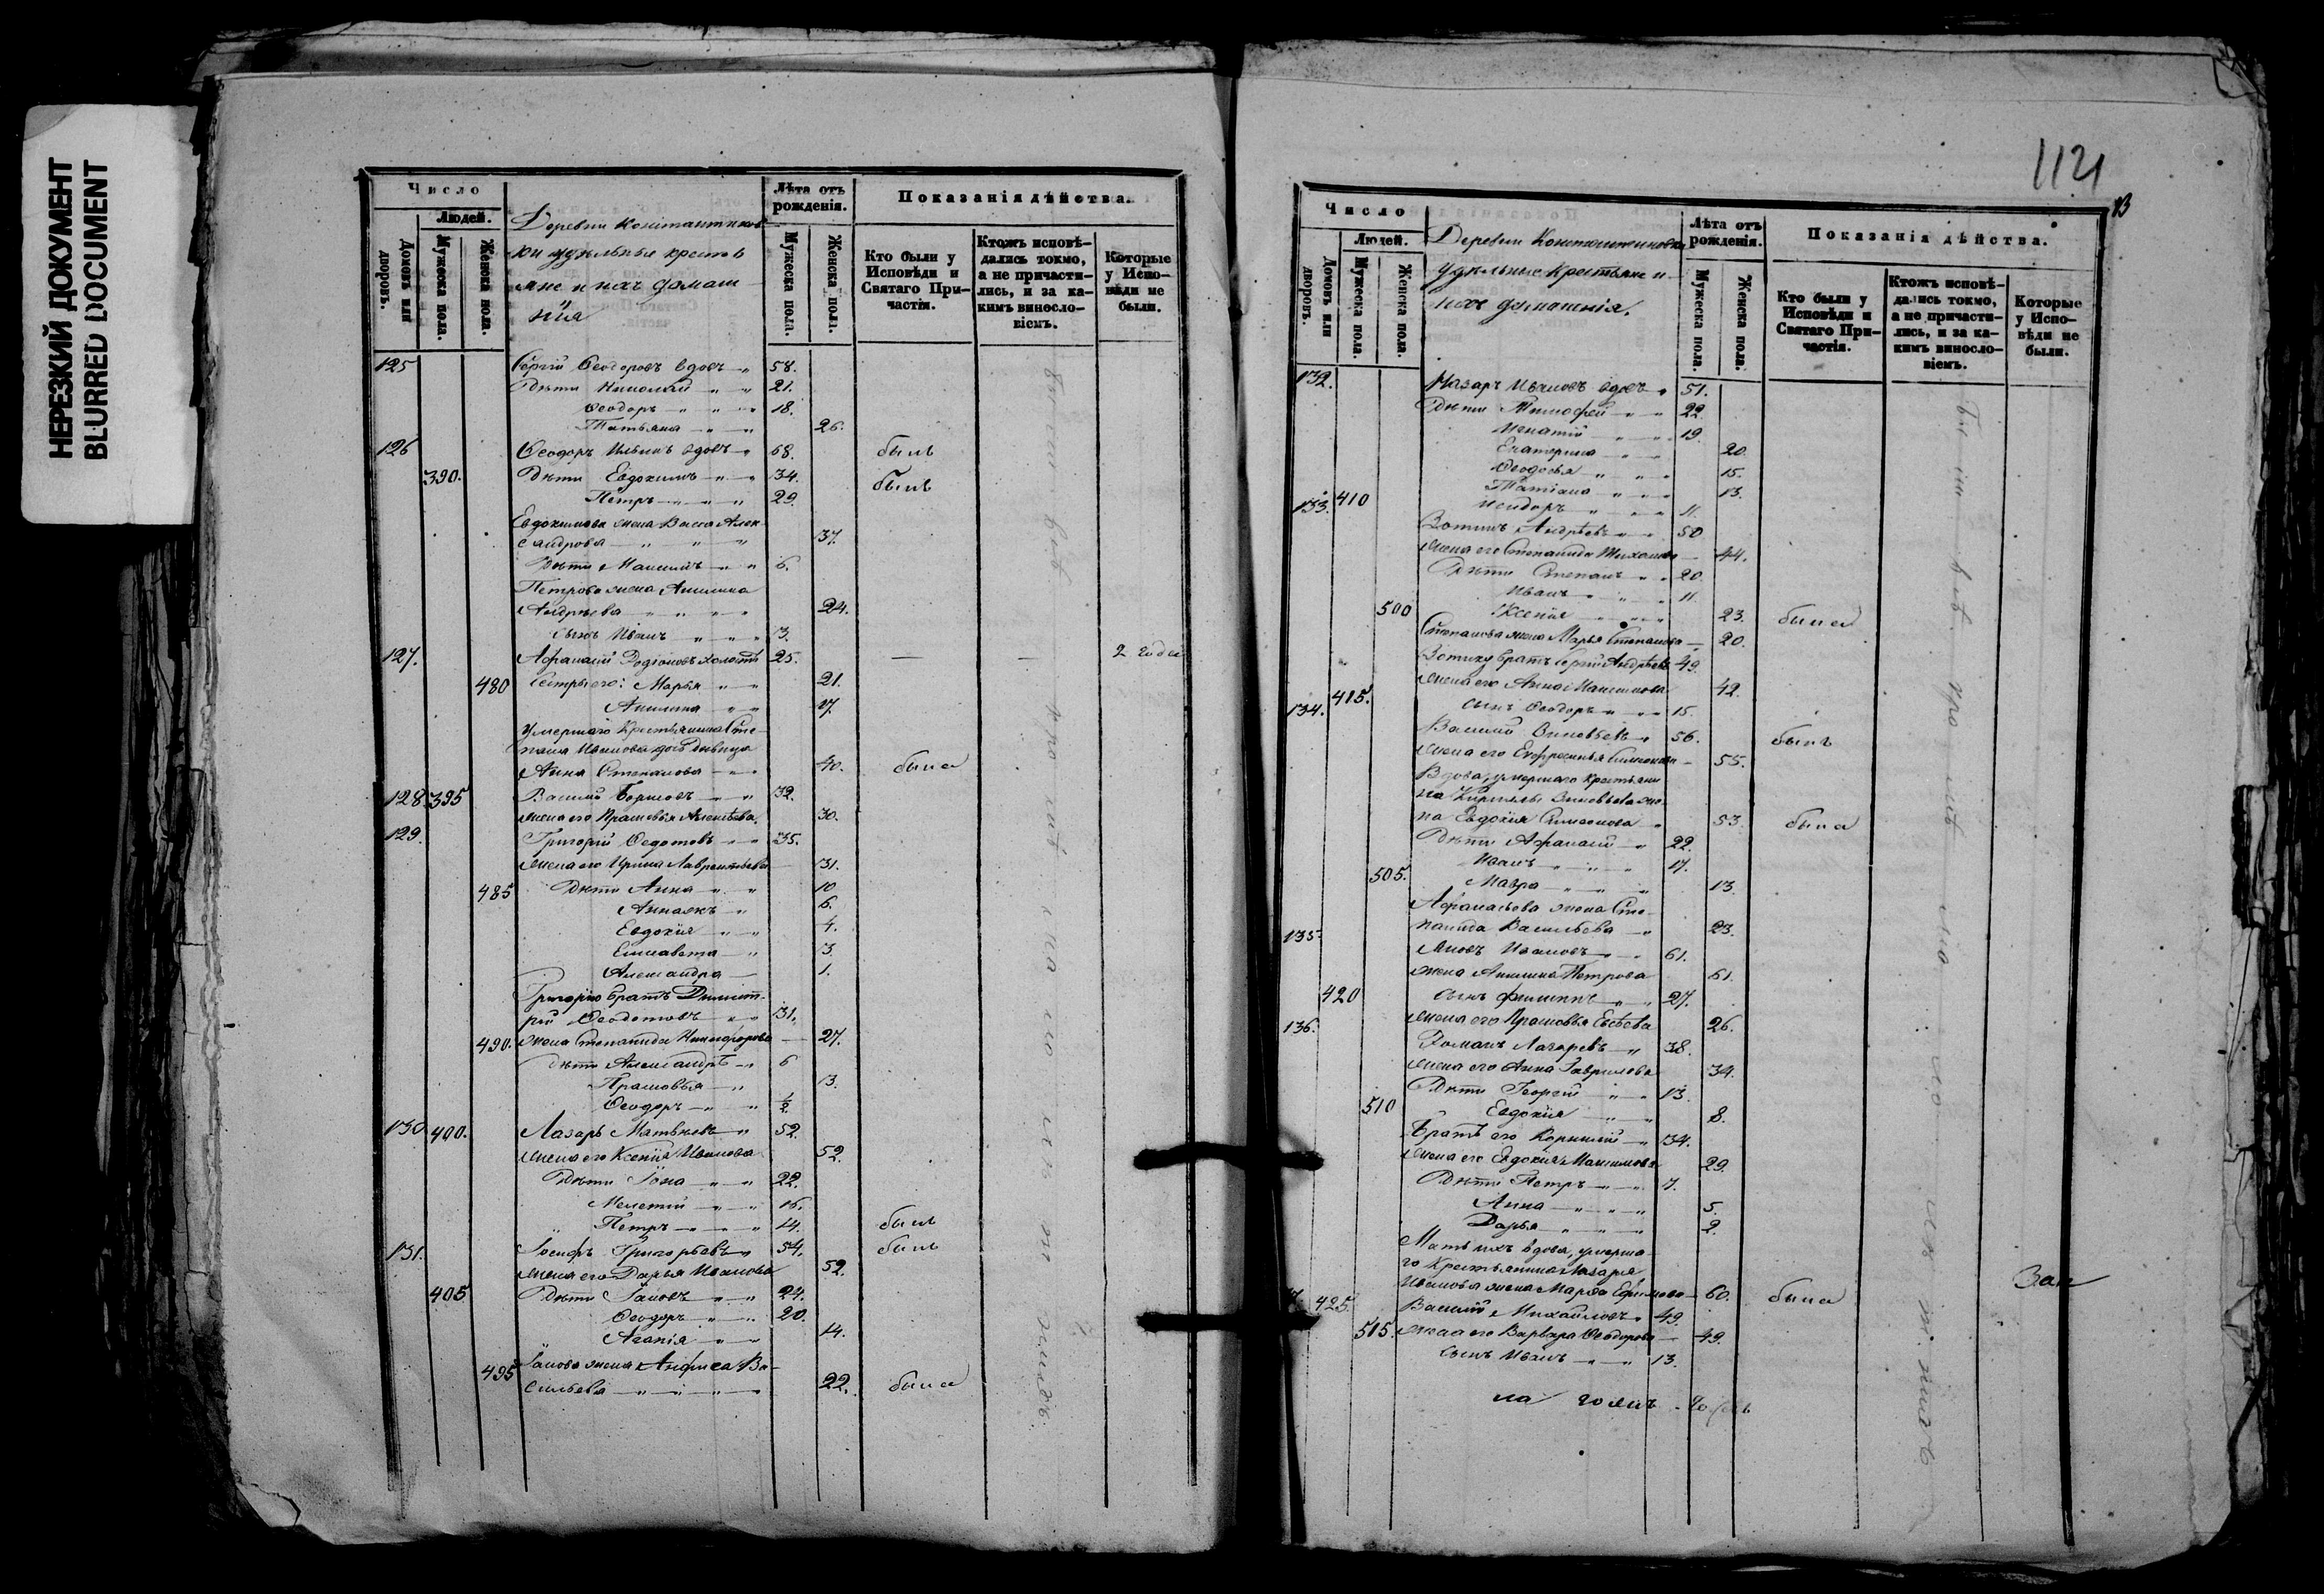 НЕРЕЗКИЙ ДОКУМЕНТ
BLURRED DOCUMENT
Число
Людей.
Домовъ или дворовъ.
Мужеска пола.
Женска пола.
Лѣта отъ рожденія.
Мужеска пола.
Женска пола.
Показанія дѣйства.
Кто были у Исповѣди и Святаго Причастія.
Ктожъ исповѣдались токмо, а не причастились, и за какимъ винословіемъ.
Которые у Исповѣди не были.
Деревни Константинов
ки удѣльные крестья
яне и ихъ домаш
нія
125 Сергій Ѳеодоровъ вдовъ 58.
Дѣти Николай 21.
Ѳеодоръ 18.
Татьяна 26.
126 Ѳеодоръ Ильинъ вдовъ 68. былъ
390. Дѣти Евдокимъ 34. былъ
Петръ 29.
Евдокимова жена Васса Алек
сандрова 37.
Дѣти Максимъ 6.
Петрова жена Акилина
Андреева 24.
сынъ Иванъ 3.
127. Афанасій Родіоновъ холостъ 25. — — 2 года
480 Сестры его: Марья 21.
Акилина 17.
Умершаго Крестьянина Сте
пана Иванова дочь дѣвица
Анна Степанова 40. была
128. 395 Василій Борисовъ 32.
жена его Прасковья Алексѣева 30.
129. Григорій Ѳедотовъ 35.
жена его Ирина Лаврентьева 31.
485 Дѣти Анна 10
6.
Евдокія 4.
Елисавета 3.
Александра 1.
Григорію братъ Димит
рій Ѳеодотовъ 31.
490. жена Степанида Никифорова 27.
дѣти Александръ 6
Прасковья 3.
Ѳеодоръ ½
130 400. Лазарь Матвѣевъ 52.
жена его Ксенія Иванова 52.
Дѣти Іона 22.
Мелетій 16.
Петръ 14. былъ
131. Іосифъ Григорьевъ 54. былъ
жена его Дарья Иванова 52.
405 Дѣти Іаковъ 24.
Ѳеодоръ 20.
Агапія 14.
495 Іакова жена Анфиса Ва
сильева 22. была
1121
Число
Людей.
Домовъ или дворовъ.
Мужеска пола.
Женска пола.
Лѣта отъ рожденія.
Мужеска пола.
Женска пола.
Показанія дѣйства.
Кто были у Исповѣди и Святаго Причастія.
Ктожъ исповѣдались токмо, а не причастились, и за какимъ винословіемъ.
Которые у Исповѣди не были.
Деревни Константиновки
удѣльные крестьяне и
ихъ домашнія.
132. Назаръ Ивановъ вдовъ 51.
Дѣти Тимофей 22
Игнатій 19.
Екатерина 20.
Ѳеодосья 15.
Татіана 13.
410 Исидоръ 11.
133. Зотикъ Андреевъ 50
жена его Степанида Тихонова 44.
Дѣти Степанъ 20.
Иванъ 11.
500 Ксенія 23. была
Степанова жена Марья Степанова 20.
Зотику братъ Сергій Андреевъ 49.
415. жена его Анна Максимова 42.
сынъ Ѳеодоръ 15.
134. Василій Зиновьевъ 56. былъ
жена его Евфросинья Симонова 55.
Вдова, умершаго крестьяни
на Кириллы Зиновьева же
на Евдокія Симеонова 53. была
Дѣти Афанасій 22.
Иванъ 17.
505. Мавра 13.
Афанасьева жена Сте
панида Васильева 23.
135. Яковъ Ивановъ 61.
жена Акилина Петрова 61.
420 сынъ Филиппъ 27.
жена его Прасковья Евсѣева 26.
136. Романъ Лазаревъ 38.
жена его Анна Гаврилова 34.
Дѣти Георгій 13.
510 Евдокія 8.
Братъ его Корнилій 34.
жена его Евдокія Максимова 29.
Дѣти Петръ 7.
Анна 5.
Дарья 2.
Мать ихъ вдова, умерша
го Крестьянина Лазаря
Иванова жена Марѳа Ефимова 60. была
425. Василій Михайловъ 49.
515. жена его Варвара Ѳеодорова 49.
сынъ Иванъ 13.